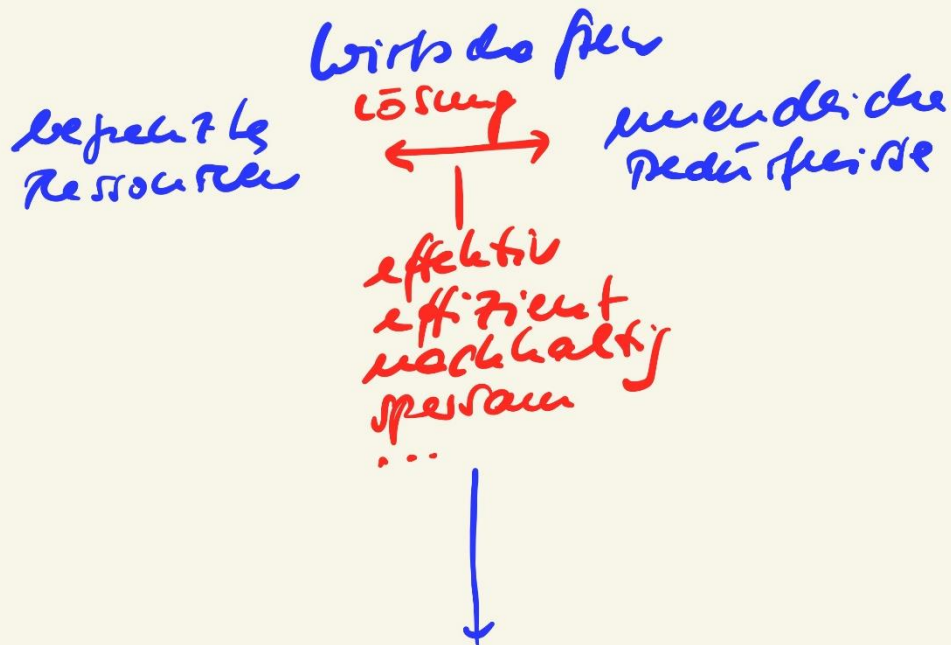 Wirtschaften
Lösung
begrenzte
Ressourcen
unendliche
Bedürfnisse
effektiv
effizient
nachhaltig
sparsam
...